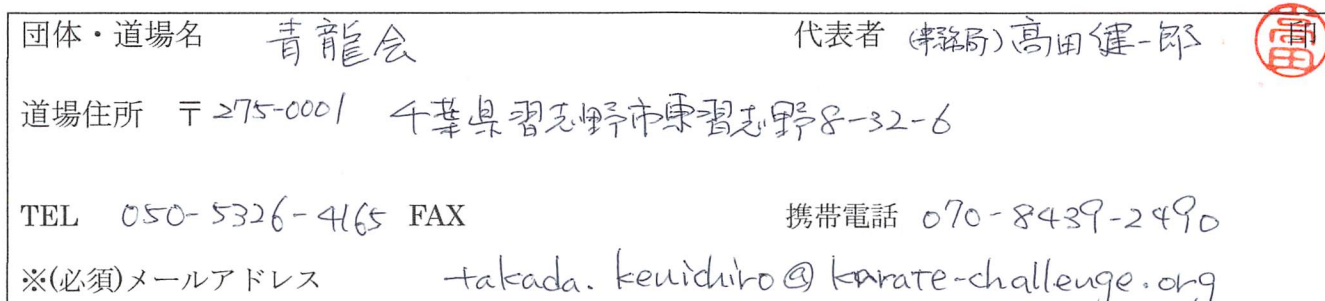 団体・道場名 青龍会 代表者 (事務局)高田健一郎 印
道場住所 〒275-0001 千葉県習志野市東習志野8-32-6
TEL 050-5326-4165 FAX 携帯電話 070-8439-2490
※(必須)メールアドレス takada.kenichiro@karate-challenge.org